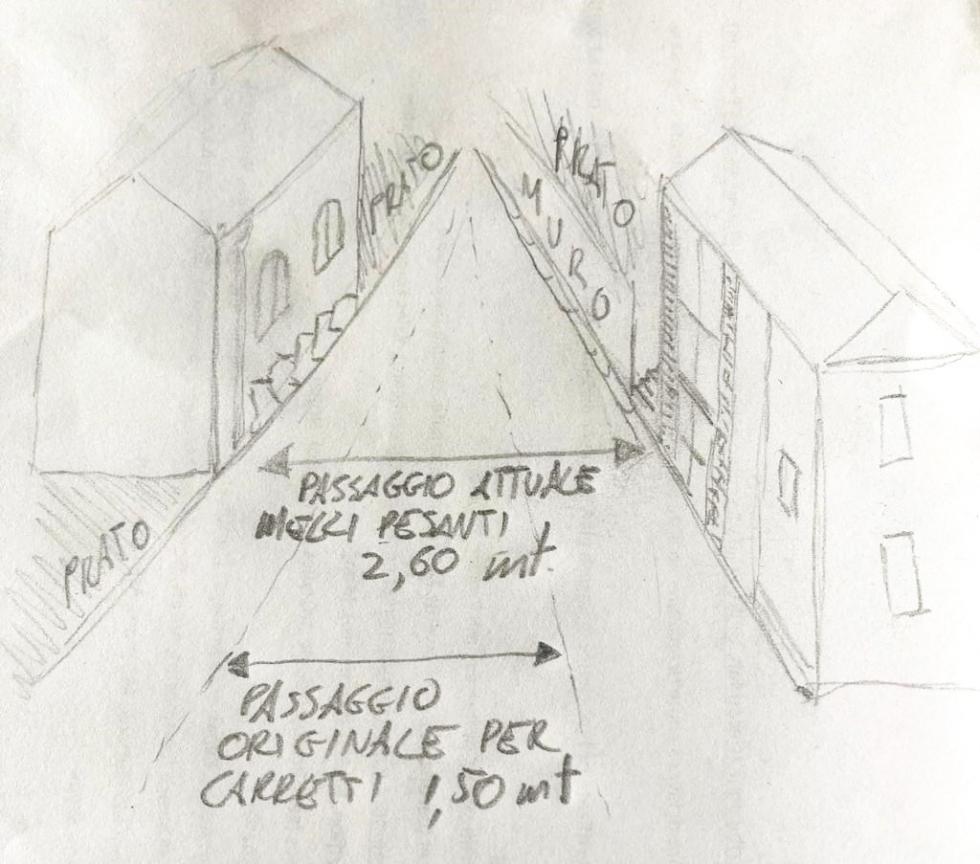 PRATO
PRATO
MURO
PASSAGGIO ATTUALE
MEZZI PESANTI
2,60 mt.
PRATO
PASSAGGIO
ORIGINALE PER
CARRETTI 1,50 mt